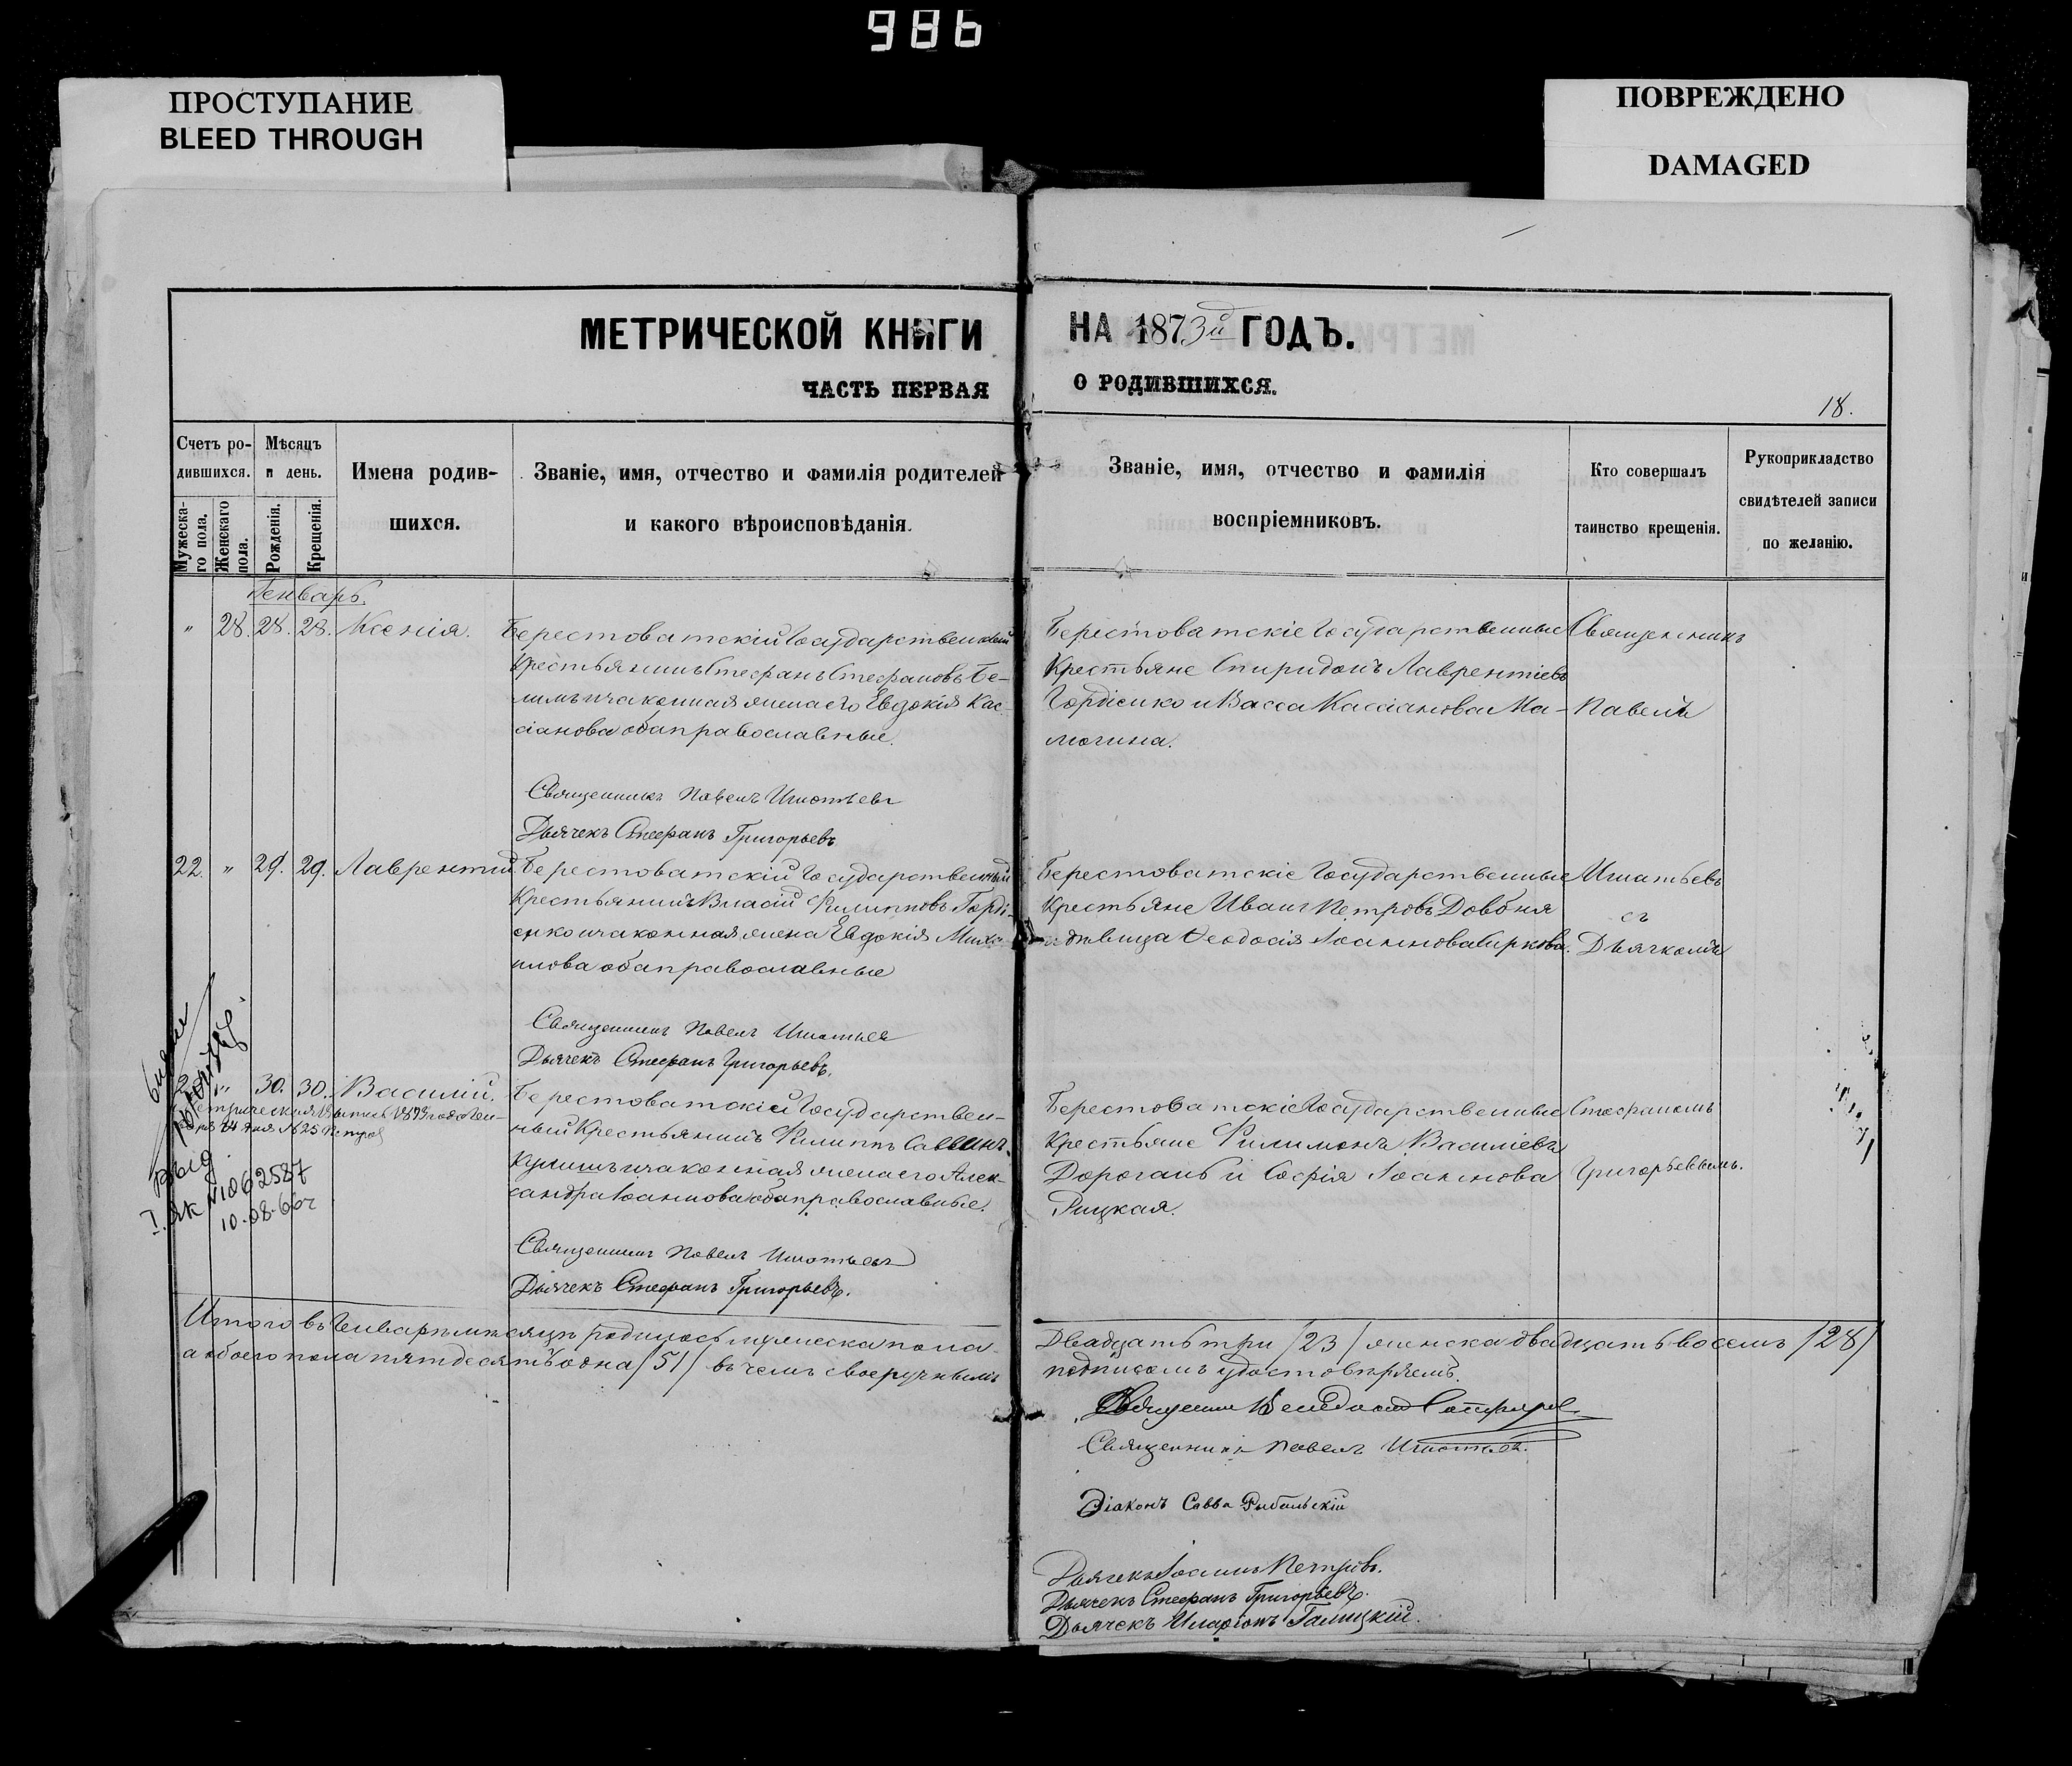 986
ПРОСТУПАНИЕ
BLEED THROUGH
ПОВРЕЖДЕНО
DAMAGED
МЕТРИЧЕСКОЙ КНИГИ НА 1873й ГОДЪ.
ЧАСТЬ ПЕРВАЯ О РОДИВШИХСЯ.
18.
Счетъ ро-
дившихся.
Мужеска-
го пола.
Женскаго
пола.
Мѣсяцъ
и день.
Рожденія.
Крещенія.
Имена родив-
шихся.
Званіе, имя, отчество и фамилія родителей
и какого вѣроисповѣданія.
Званіе, имя, отчество и фамилія
воспріемниковъ.
Кто совершалъ
таинство крещенія.
Рукоприкладство
свидѣтелей записи
по желанію.
Генварь.
" 28. 28. 28. Ксенія.
Берестоватскій Государственный
Крестьянинъ Стефанъ Стефановъ Бе-
законная жена его Евдокія Кас-
сіанова оба православные.
Берестоватскіе Государственные
Крестьяне Спиридонъ Лаврентіевъ
Гордіенко и Васса Кассіанова Ма-
Священникъ
Павелъ
Священникъ Павелъ Игнатьевъ
Дьячекъ Стефанъ Григорьевъ
22. " 29. 29. Лаврентій.
Берестоватскій Государственный
Крестьянинъ Власій Филипповъ Горді-
енко и законная жена Евдокія Миха-
илова оба православные
Берестоватскіе Государственные
Крестьяне Иванъ Петровъ Довбня
и дѣвица Феодосія Іоаннова
Игнатьевъ
съ
Дьячкомъ
Священникъ Павелъ Игнатьевъ
Дьячекъ Стефанъ Григорьевъ.
" 30. 30. Василій.
Берестоватскій Государствен-
ный Крестьянинъ Филиппъ Саввинъ
и законная жена его Алек-
сандра Іоаннова оба православные.
Берестоватскіе Государственные
Крестьяне Филимонъ Василіевъ
Дорогань и Софія Іоаннова
Рицкая.
Стефаномъ
Григорьевымъ.
I. ЯК №1062587
10.08.66г
Священникъ Павелъ Игнатьевъ
Дьячекъ Стефанъ Григорьевъ.
Итого въ Генварѣ мѣсяцѣ родилось мужеска пола Двадцать три /23/ женска двадцать восемь /28/
а обоего пола пятьдесятъ одна /51/ въ чемъ своеручнымъ подписомъ удостовѣряемъ.
Священникъ Павелъ Игнатьевъ.
Діаконъ Савва Рыбальскій
Дьячекъ Іоаннъ Петровъ.
Дьячекъ Стефанъ Григорьевъ.
Дьячекъ Иларіонъ Галицкій.